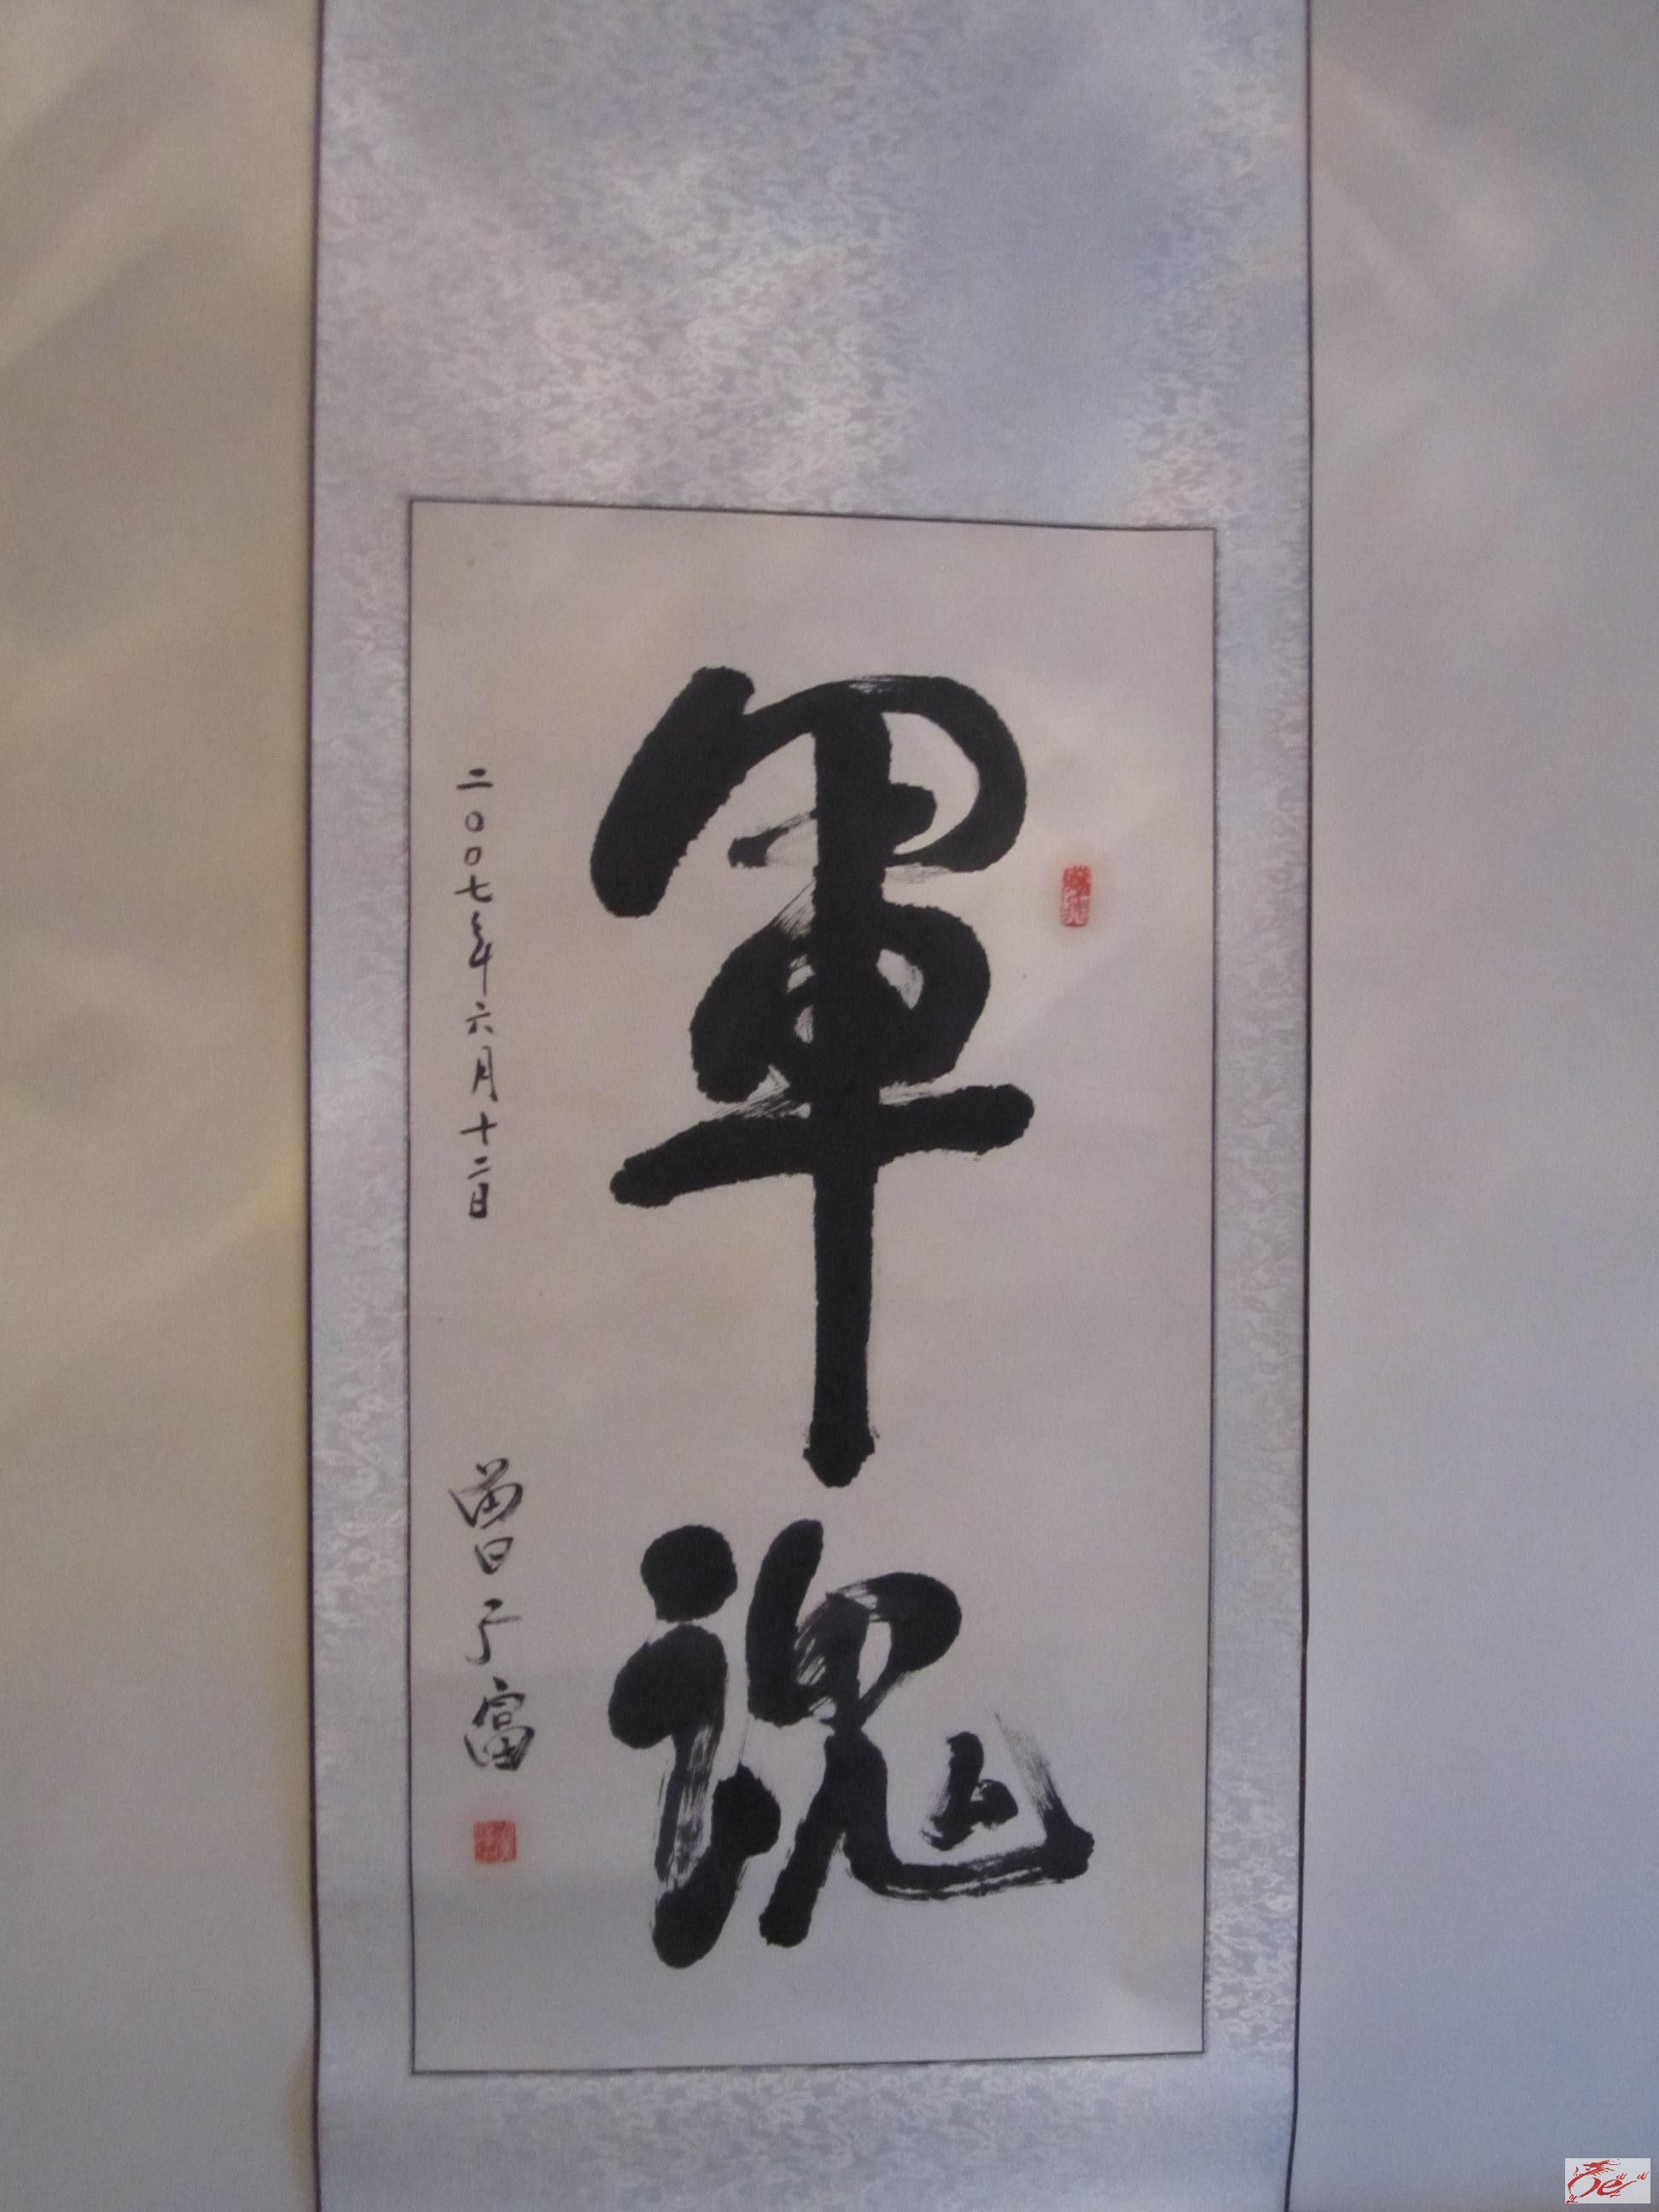 軍魂
二〇〇七年六月十二日
曾于富